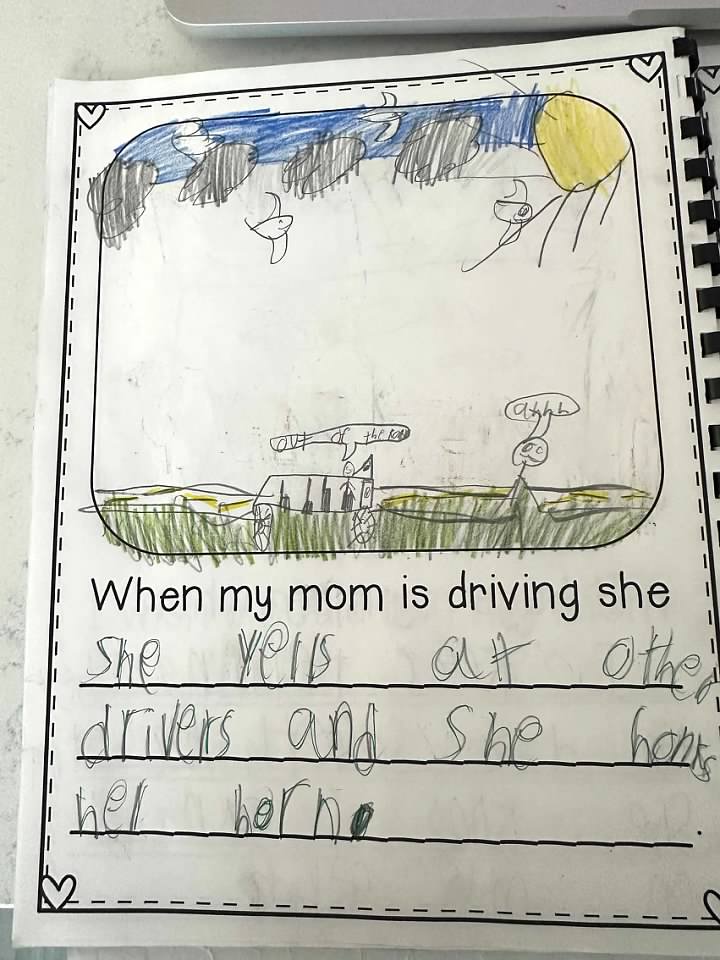 ahhh
out of the road
When my mom is driving she
she yells at other
drivers and she honks
her horn.
.